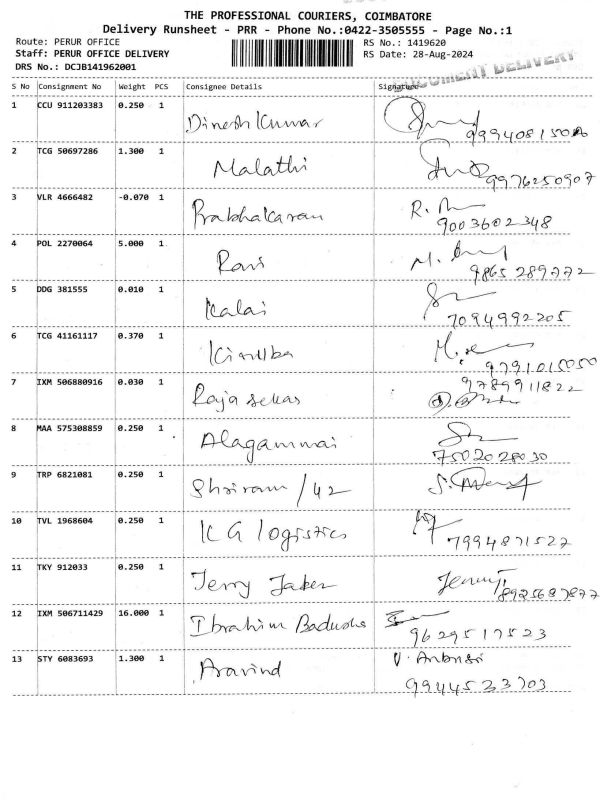 THE PROFESSIONAL COURIERS, COIMBATORE
Delivery Runsheet - PRR - Phone No.:0422-3505555 - Page No.:1
Route: PERUR OFFICE RS No.: 1419620
Staff: PERUR OFFICE DELIVERY RS Date: 28-Aug-2024
DRS No.: DCJB141962001 DOCUMENT DELIVERY
S No Consignment No Weight PCS Consignee Details Signature
1 CCU 911203383 0.250 1 Dinesh Kumar
2 TCG 50697286 1.300 1 Malathi
9976250907
3 VLR 4666482 -0.070 1 Prabhakaran
9003602348
4 POL 2270064 5.000 1 Ravi
9865289772
5 DDG 381555 0.010 1 Kalai
7094992205
6 TCG 41161117 0.370 1
9791015050
7 IXM 506880916 0.030 1 Raja sekar
9789911822
8 MAA 575308859 0.250 1 Alagammai
7502028030
9 TRP 6821081 0.250 1 Shriram/42
10 TVL 1968604 0.250 1 KG logistics
7994871527
11 TKY 912033 0.250 1 Jerry Jaken
8925687877
12 IXM 506711429 16.000 1 Ibrahim Badusha
9629517523
13 STY 6083693 1.300 1 Aravind
9944533703